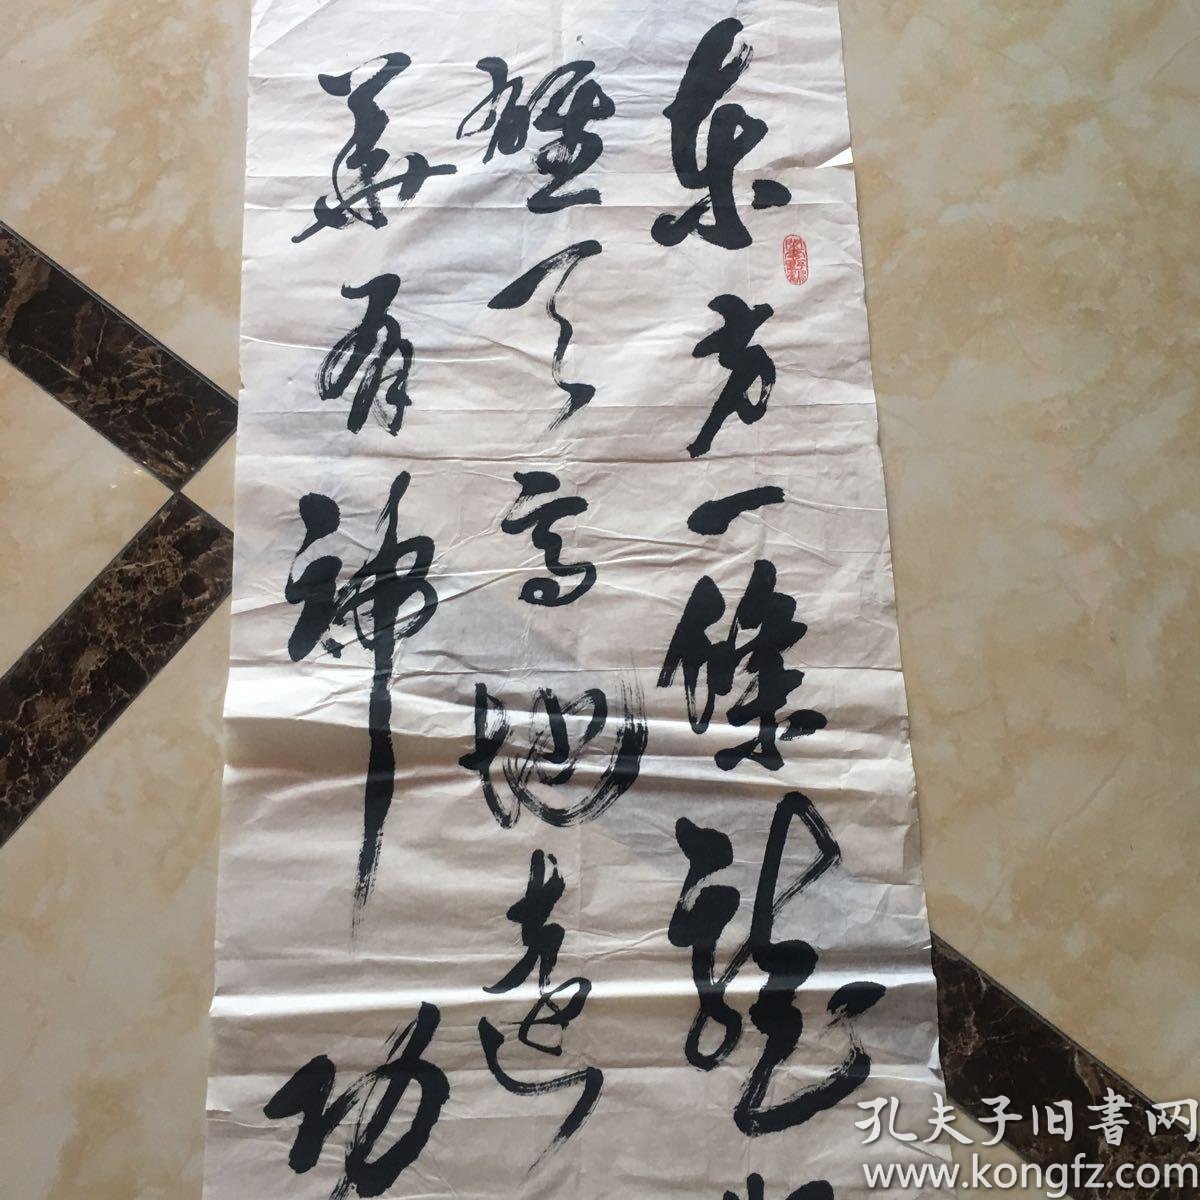 東方一條龍
天高地遠
華有神功
孔夫子旧書网
www.kongfz.com